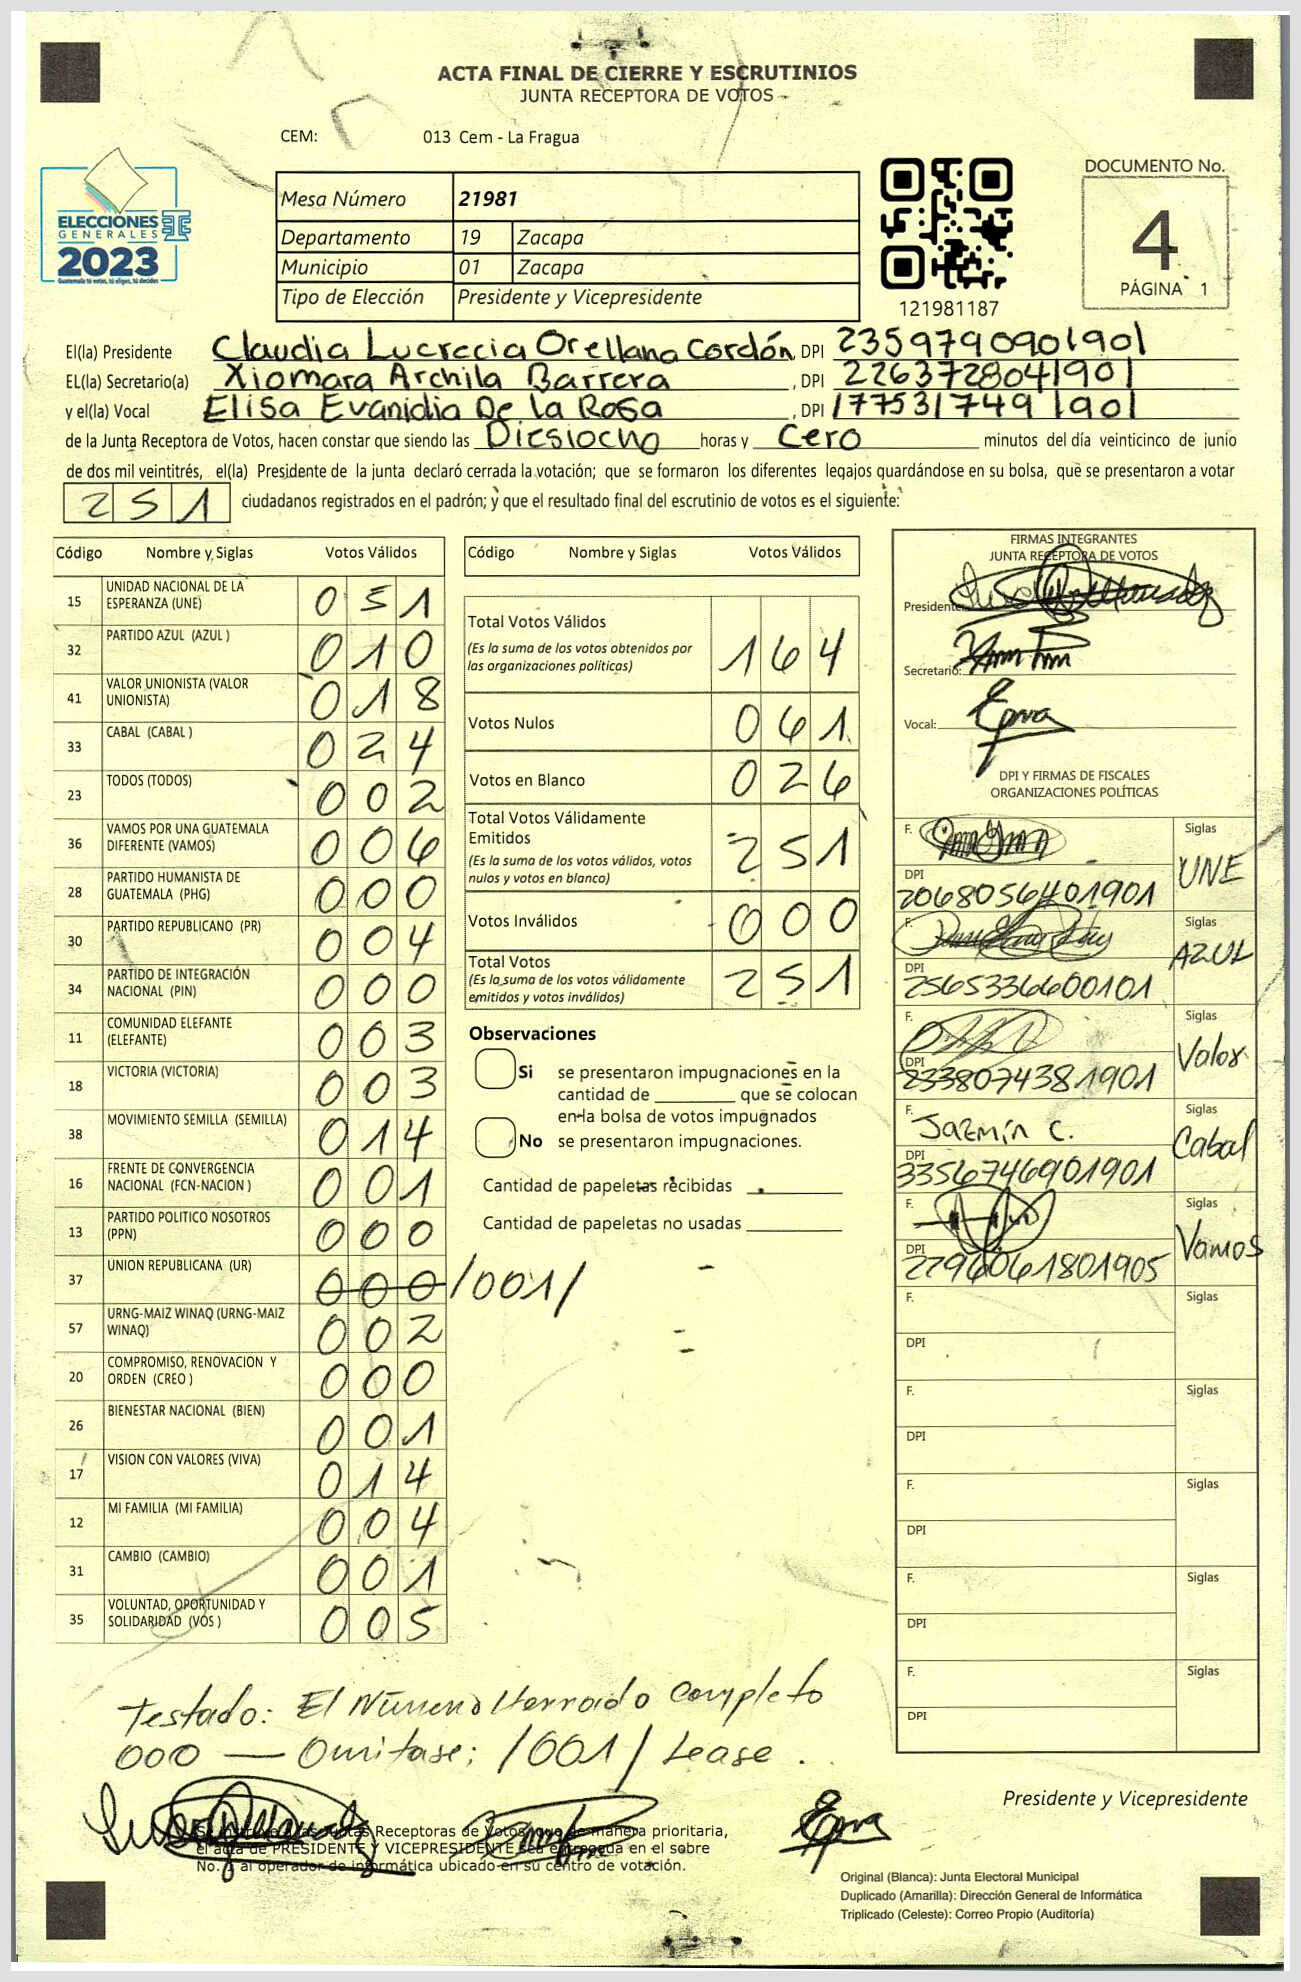 ACTA FINAL DE CIERRE Y ESCRUTINIOS
JUNTA RECEPTORA DE VOTOS
CEM: 013 Cem - La Fragua
ELECCIONES
GENERALES
2023
Guatemala tú votas, tú eliges, tú decides
Mesa Número 21981
Departamento 19 Zacapa
Municipio 01 Zacapa
Tipo de Elección Presidente y Vicepresidente
121981187
DOCUMENTO No.
4
PÁGINA 1
El(la) Presidente Claudia Lucrecia Orellana Cordón, DPI 2359790901901
EL(la) Secretario(a) Xiomara Archila Barrera, DPI 2263728041901
y el(la) Vocal Elisa Evanidia De La Rosa, DPI 1775317491901
de la Junta Receptora de Votos, hacen constar que siendo las Diesiocho horas y Cero minutos del día veinticinco de junio
de dos mil veintitrés, el(la) Presidente de la junta declaró cerrada la votación; que se formaron los diferentes legajos guardándose en su bolsa, que se presentaron a votar
251 ciudadanos registrados en el padrón; y que el resultado final del escrutinio de votos es el siguiente:
Código Nombre y Siglas Votos Válidos
15 UNIDAD NACIONAL DE LA ESPERANZA (UNE) 051
32 PARTIDO AZUL (AZUL ) 010
41 VALOR UNIONISTA (VALOR UNIONISTA) 018
33 CABAL (CABAL ) 024
23 TODOS (TODOS) 002
36 VAMOS POR UNA GUATEMALA DIFERENTE (VAMOS) 006
28 PARTIDO HUMANISTA DE GUATEMALA (PHG) 000
30 PARTIDO REPUBLICANO (PR) 004
34 PARTIDO DE INTEGRACIÓN NACIONAL (PIN) 000
11 COMUNIDAD ELEFANTE (ELEFANTE) 003
18 VICTORIA (VICTORIA) 003
38 MOVIMIENTO SEMILLA (SEMILLA) 014
16 FRENTE DE CONVERGENCIA NACIONAL (FCN-NACION ) 001
13 PARTIDO POLITICO NOSOTROS (PPN) 000
37 UNION REPUBLICANA (UR) 000 /001/
57 URNG-MAIZ WINAQ (URNG-MAIZ WINAQ) 002
20 COMPROMISO, RENOVACION Y ORDEN (CREO ) 000
26 BIENESTAR NACIONAL (BIEN) 001
17 VISION CON VALORES (VIVA) 014
12 MI FAMILIA (MI FAMILIA) 004
31 CAMBIO (CAMBIO) 001
35 VOLUNTAD, OPORTUNIDAD Y SOLIDARIDAD (VOS ) 005
Código Nombre y Siglas Votos Válidos
Total Votos Válidos 164
(Es la suma de los votos obtenidos por
las organizaciones políticas)
Votos Nulos 061
Votos en Blanco 026
Total Votos Válidamente
Emitidos 251
(Es la suma de los votos válidos, votos
nulos y votos en blanco)
Votos Inválidos 000
Total Votos 251
(Es la suma de los votos válidamente
emitidos y votos inválidos)
Observaciones
Si se presentaron impugnaciones en la
cantidad de ________ que se colocan
en la bolsa de votos impugnados
No se presentaron impugnaciones.
Cantidad de papeletas recibidas
Cantidad de papeletas no usadas
FIRMAS INTEGRANTES
JUNTA RECEPTORA DE VOTOS
Presidente:
Secretario:
Vocal:
DPI Y FIRMAS DE FISCALES
ORGANIZACIONES POLÍTICAS
F. Siglas
DPI UNE
2068056401901
F. Siglas
DPI AZUL
2565336600101
F. Siglas
DPI Valor
2338074381901
F. Jazmín C. Siglas
DPI Cabal
3356746901901
F. Siglas
DPI Vamos
2296061801905
F. Siglas
DPI
F. Siglas
DPI
F. Siglas
DPI
F. Siglas
DPI
F. Siglas
DPI
Testado: El Número Herrado Completo
000 — Omitase; /001/ Lease.
Presidente y Vicepresidente
Receptoras de Votos que de manera prioritaria,
el acta de PRESIDENTE Y VICEPRESIDENTE sea entregada en el sobre
No. al operador de informática ubicado en su centro de votación.
Original (Blanca): Junta Electoral Municipal
Duplicado (Amarilla): Dirección General de Informática
Triplicado (Celeste): Correo Propio (Auditoría)